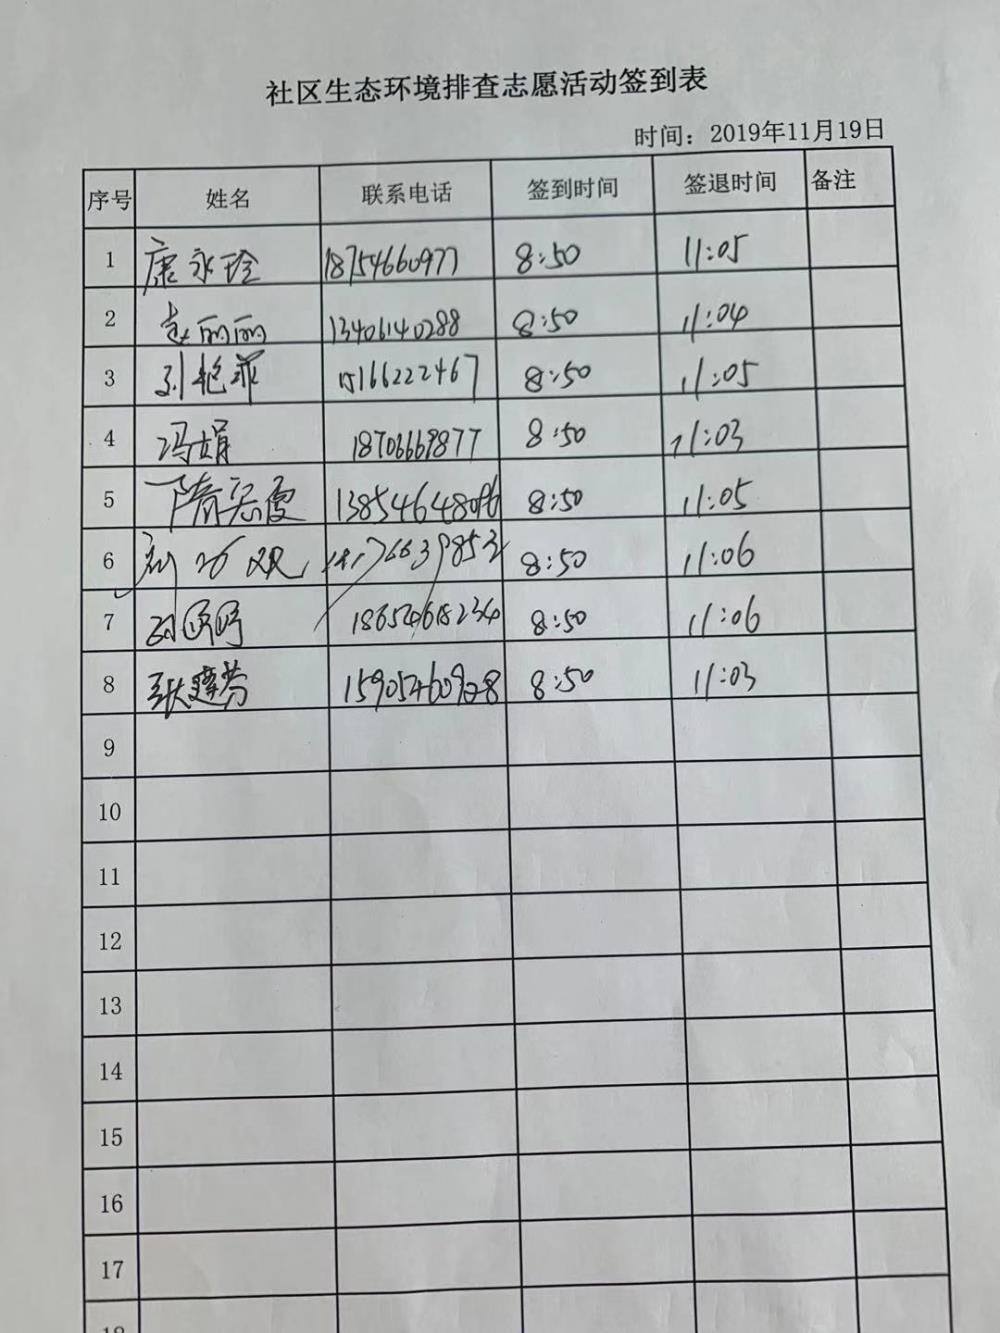 社区生态环境排查志愿活动签到表
时间：2019年11月19日
序号 姓名 联系电话 签到时间 签退时间 备注
1 康永玲 18754660977 8:50 11:05
2 赵丽丽 13406140288 8:50 11:04
3 刘艳菲 15166222467 8:50 11:05
4 冯娟 18706669877 8:50 11:03
5 隋云霞 13854648096 8:50 11:05
6 8:50 11:06
7 18654618234 8:50 11:06
8 张建芳 15905460928 8:50 11:03
9
10
11
12
13
14
15
16
17
18